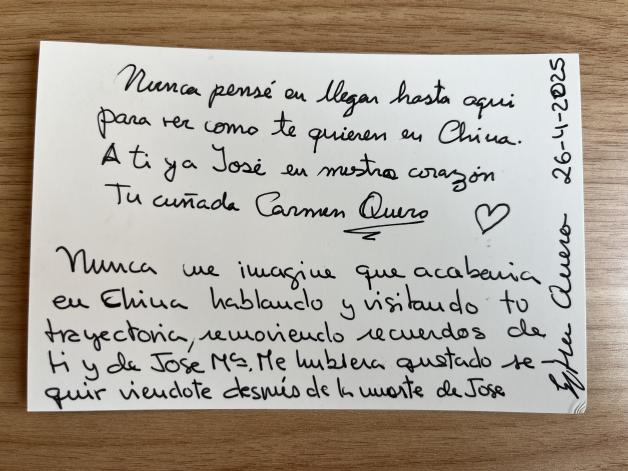 Nunca pensé en llegar hasta aqui
para ver como te quieren en China.
A ti y a José en nuestro corazón
Tu cuñada Carmen Quero
Nunca me imagine que acabaria
en China hablando y visitando tu
trayectoria, removiendo recuerdos de
ti y de José Mª. Me hubiera gustado se
guir viendote después de la muerte de Jose
Quero 26-4-2025